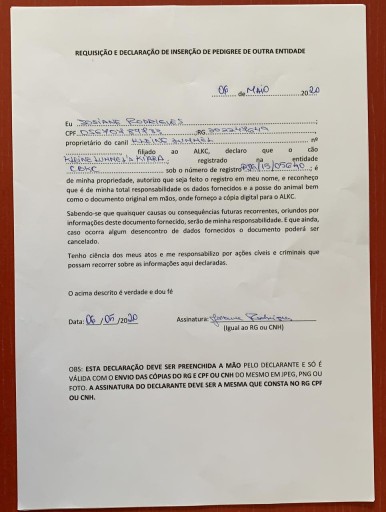 REQUISIÇÃO E DECLARAÇÃO DE INSERÇÃO DE PEDIGREE DE OUTRA ENTIDADE
06 de MAIO 2020
Eu JOSIANE RODRIGUES ;
CPF RG
proprietário do canil KLEINE LUMMEL nº
filiado ao ALKC, declaro que o cão
KLEINE LUMMEL'S KIARA registrado na entidade
CBKC sob o número de registro é
de minha propriedade, autorizo que seja feito o registro em meu nome, e reconheço
que é de minha total responsabilidade os dados fornecidos e a posse do animal bem
como o documento original em mãos, onde forneço a cópia digital para o ALKC.
Sabendo-se que quaisquer causas ou consequências futuras recorrentes, oriundos por
informações deste documento fornecido, serão de minha responsabilidade. E que ainda,
caso ocorra algum desencontro de dados fornecidos o documento poderá ser
cancelado.
Tenho ciência dos meus atos e me responsabilizo por ações cíveis e criminais que
possam recorrer sobre as informações aqui declaradas.
O acima descrito é verdade e dou fé
Data: 06 / 05 /2020 Assinatura: Josiane Rodrigues
(Igual ao RG ou CNH)
OBS: ESTA DECLARAÇÃO DEVE SER PREENCHIDA A MÃO PELO DECLARANTE E SÓ É
VÁLIDA COM O ENVIO DAS CÓPIAS DO RG E CPF OU CNH DO MESMO EM JPEG, PNG OU
FOTO. A ASSINATURA DO DECLARANTE DEVE SER A MESMA QUE CONSTA NO RG CPF
OU CNH.